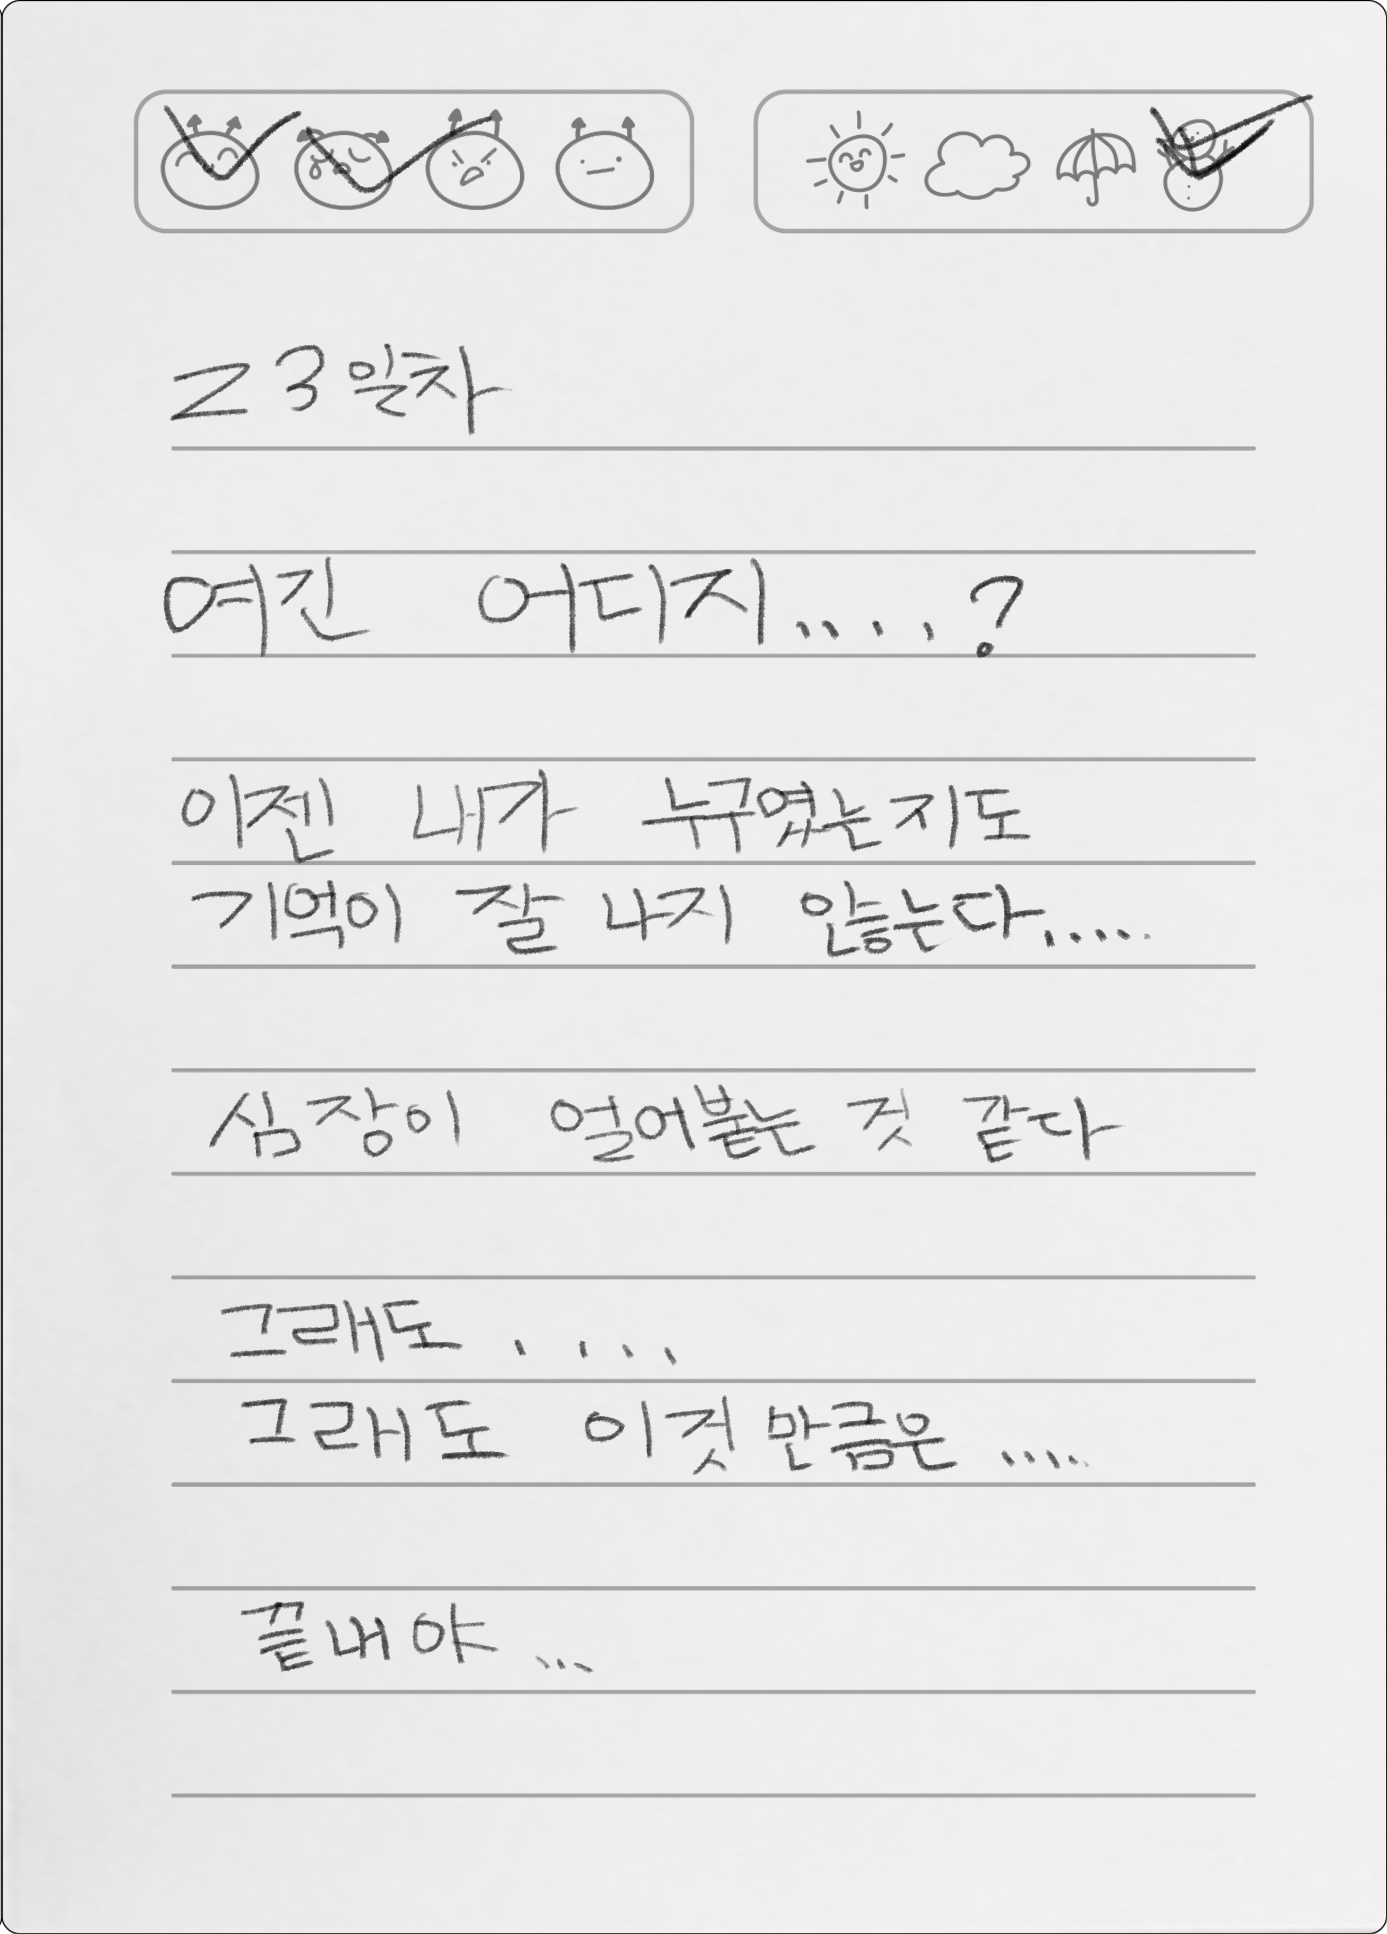 23일차
여긴 어디지.....?
이젠 내가 누구였는지도
기억이 잘 나지 않는다.....
심장이 얼어붙는 것 같다
그래도 ....
그래도 이것만큼은 ....
끝내야 ...